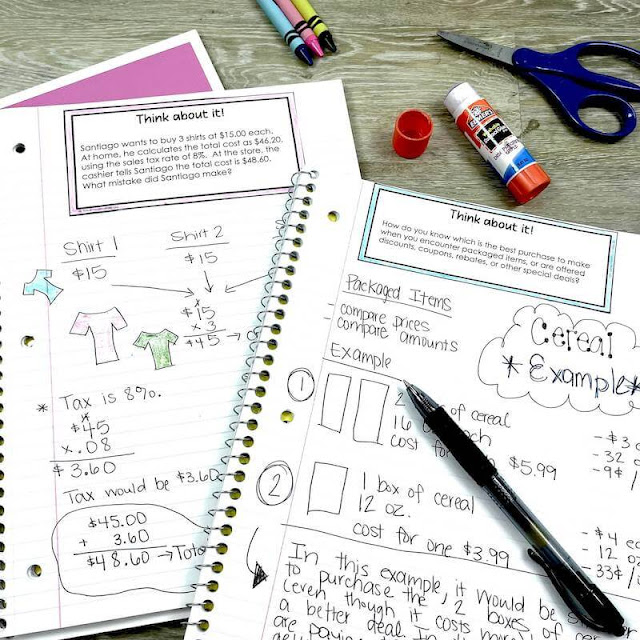 Think about it!
Santiago wants to buy 3 shirts at $15.00 each.
At home, he calculates the total cost as $46.20,
using the sales tax rate of 8%. At the store, the
cashier tells Santiago the total cost is $48.60.
What mistake did Santiago make?
Shirt 1
$15
Shirt 2
$15
$15
x 3
$45
* Tax is 8%.
$45
x.08
$3.60
Tax would be $3.60
$45.00
+ 3.60
$48.60 → Tota
Think about it!
How do you know which is the best purchase to make
when you encounter packaged items, or are offered
discounts, coupons, rebates, or other special deals?
Packaged Items
compare prices
compare amounts
Cereal
* Example *
Example
1
2 of cereal
16 each
cost for $5.99
2
1 box of cereal
12 oz.
cost for one $3.99
- 32
- 9¢
- 12
- 33¢
In this example, it would be
to purchase the 2 boxes of
(even though it costs
a better deal
are